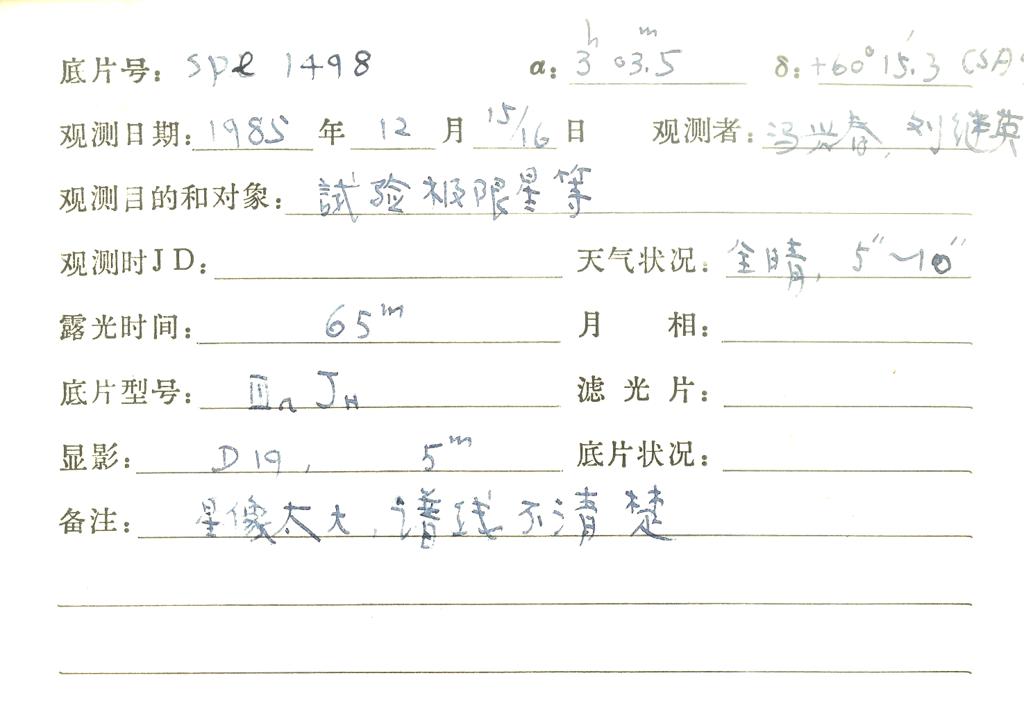 底片号: spe 1498 α: 3ʰ 03ᵐ.5 δ: +60° 15'.3 (SA
观测日期: 1985 年 12 月 15/16 日 观测者: 冯兴春, 刘继英
观测目的和对象: 試验极限星等
观测时JD: 天气状况: 全晴, 5"~10"
露光时间: 65ᵐ 月 相:
底片型号: Ⅲa JH 滤 光 片:
显影: D19, 5ᵐ 底片状况:
备注: 星像太大, 谱线不清楚